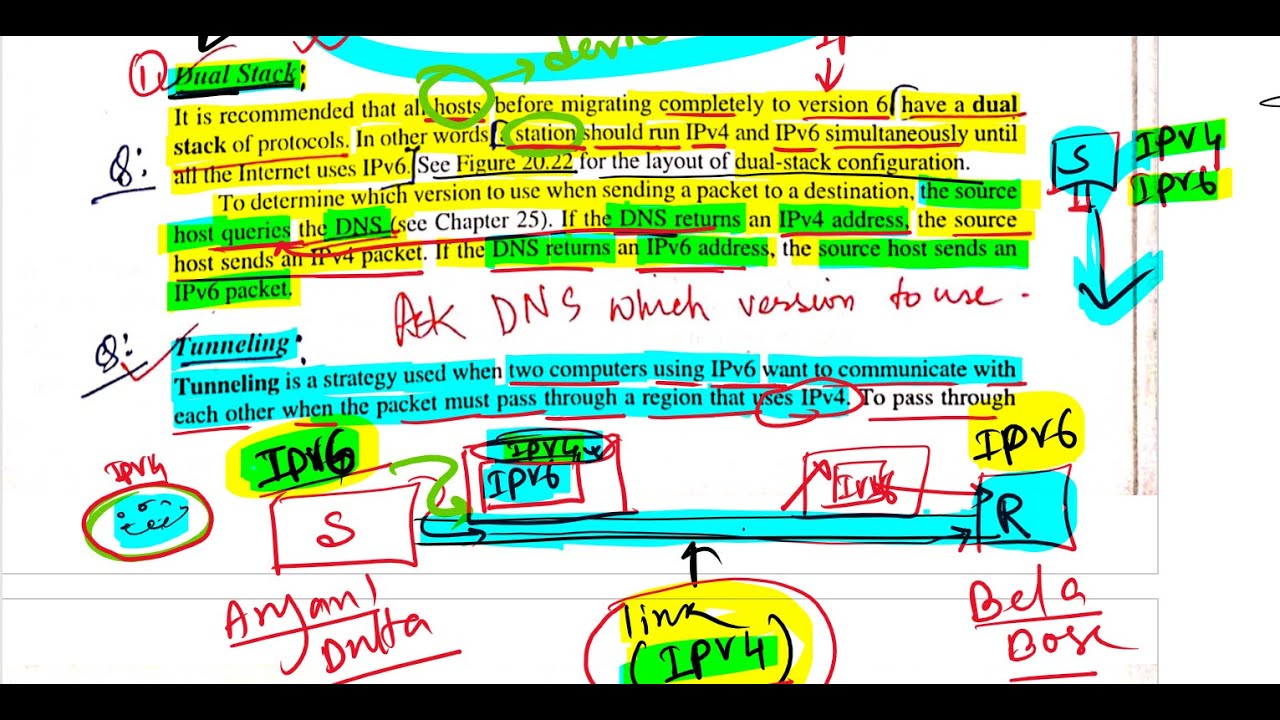 ① Dual Stack:
It is recommended that all hosts before migrating completely to version 6, have a dual
stack of protocols. In other words, a station should run IPv4 and IPv6 simultaneously until
all the Internet uses IPv6. See Figure 20.22 for the layout of dual-stack configuration.
Q:
S
IPv4
IPv6
To determine which version to use when sending a packet to a destination, the source
host queries the DNS (see Chapter 25). If the DNS returns an IPv4 address, the source
host sends an IPv4 packet. If the DNS returns an IPv6 address, the source host sends an
IPv6 packet.
Ask DNS which version to use.
Q:
Tunneling:
Tunneling is a strategy used when two computers using IPv6 want to communicate with
each other when the packet must pass through a region that uses IPv4. To pass through
IPv4
IPv6
IPv4
IPv6
IPv6
S
R
link
(IPv4)
Bela
Bose